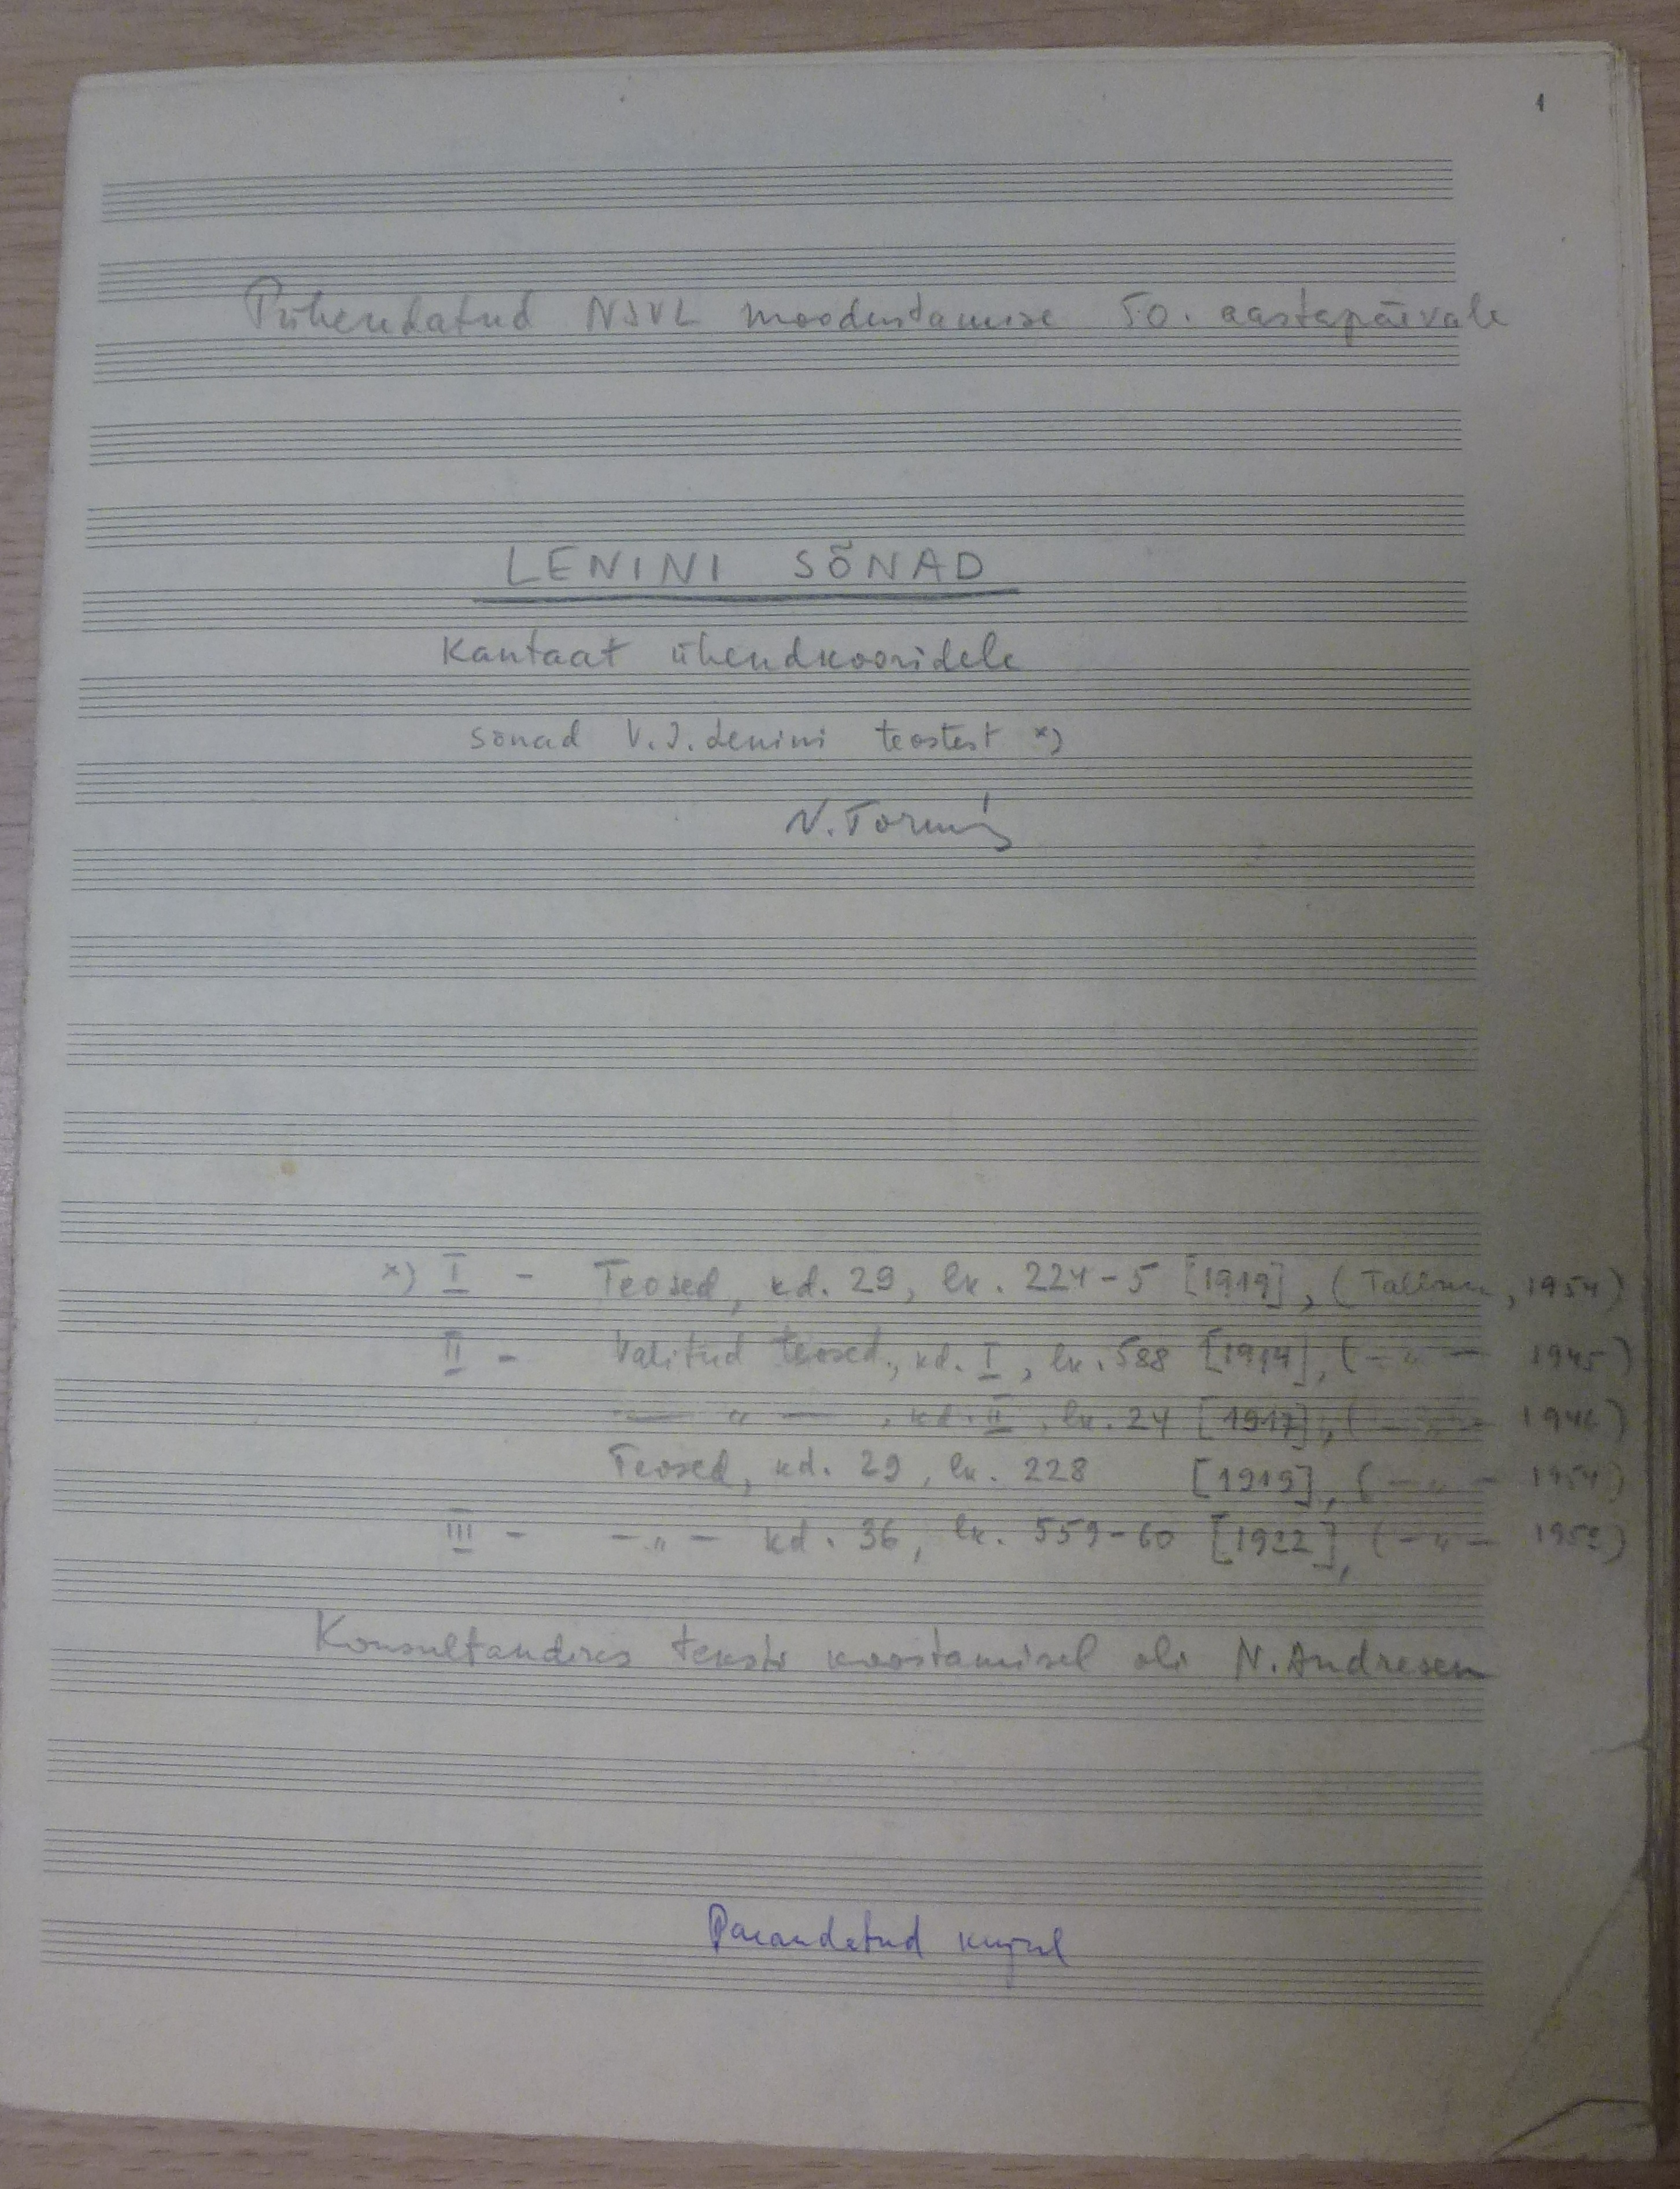 1
Pühendatud NSVL moodustamise 50. aastapäevale
LENINI SÕNAD
Kantaat ühendkooridele
sõnad V. I. Lenini teostest x)
V. Tormis
x) I - Teosed, kd. 29, lk. 224-5 [1919], (Tallinn, 1954)
II - Valitud teosed, kd. I, lk. 588 [1914], (— " — 1945)
— " — , kd. II, lk. 24 [1917], (— " — 1946)
Teosed, kd. 29, lk. 228 [1919], (— " — 1954)
III - — " — kd. 36, lk. 559-60 [1922], (— " —
Konsultandiks teksti koostamisel oli N. Andresen
Parandatud kujul